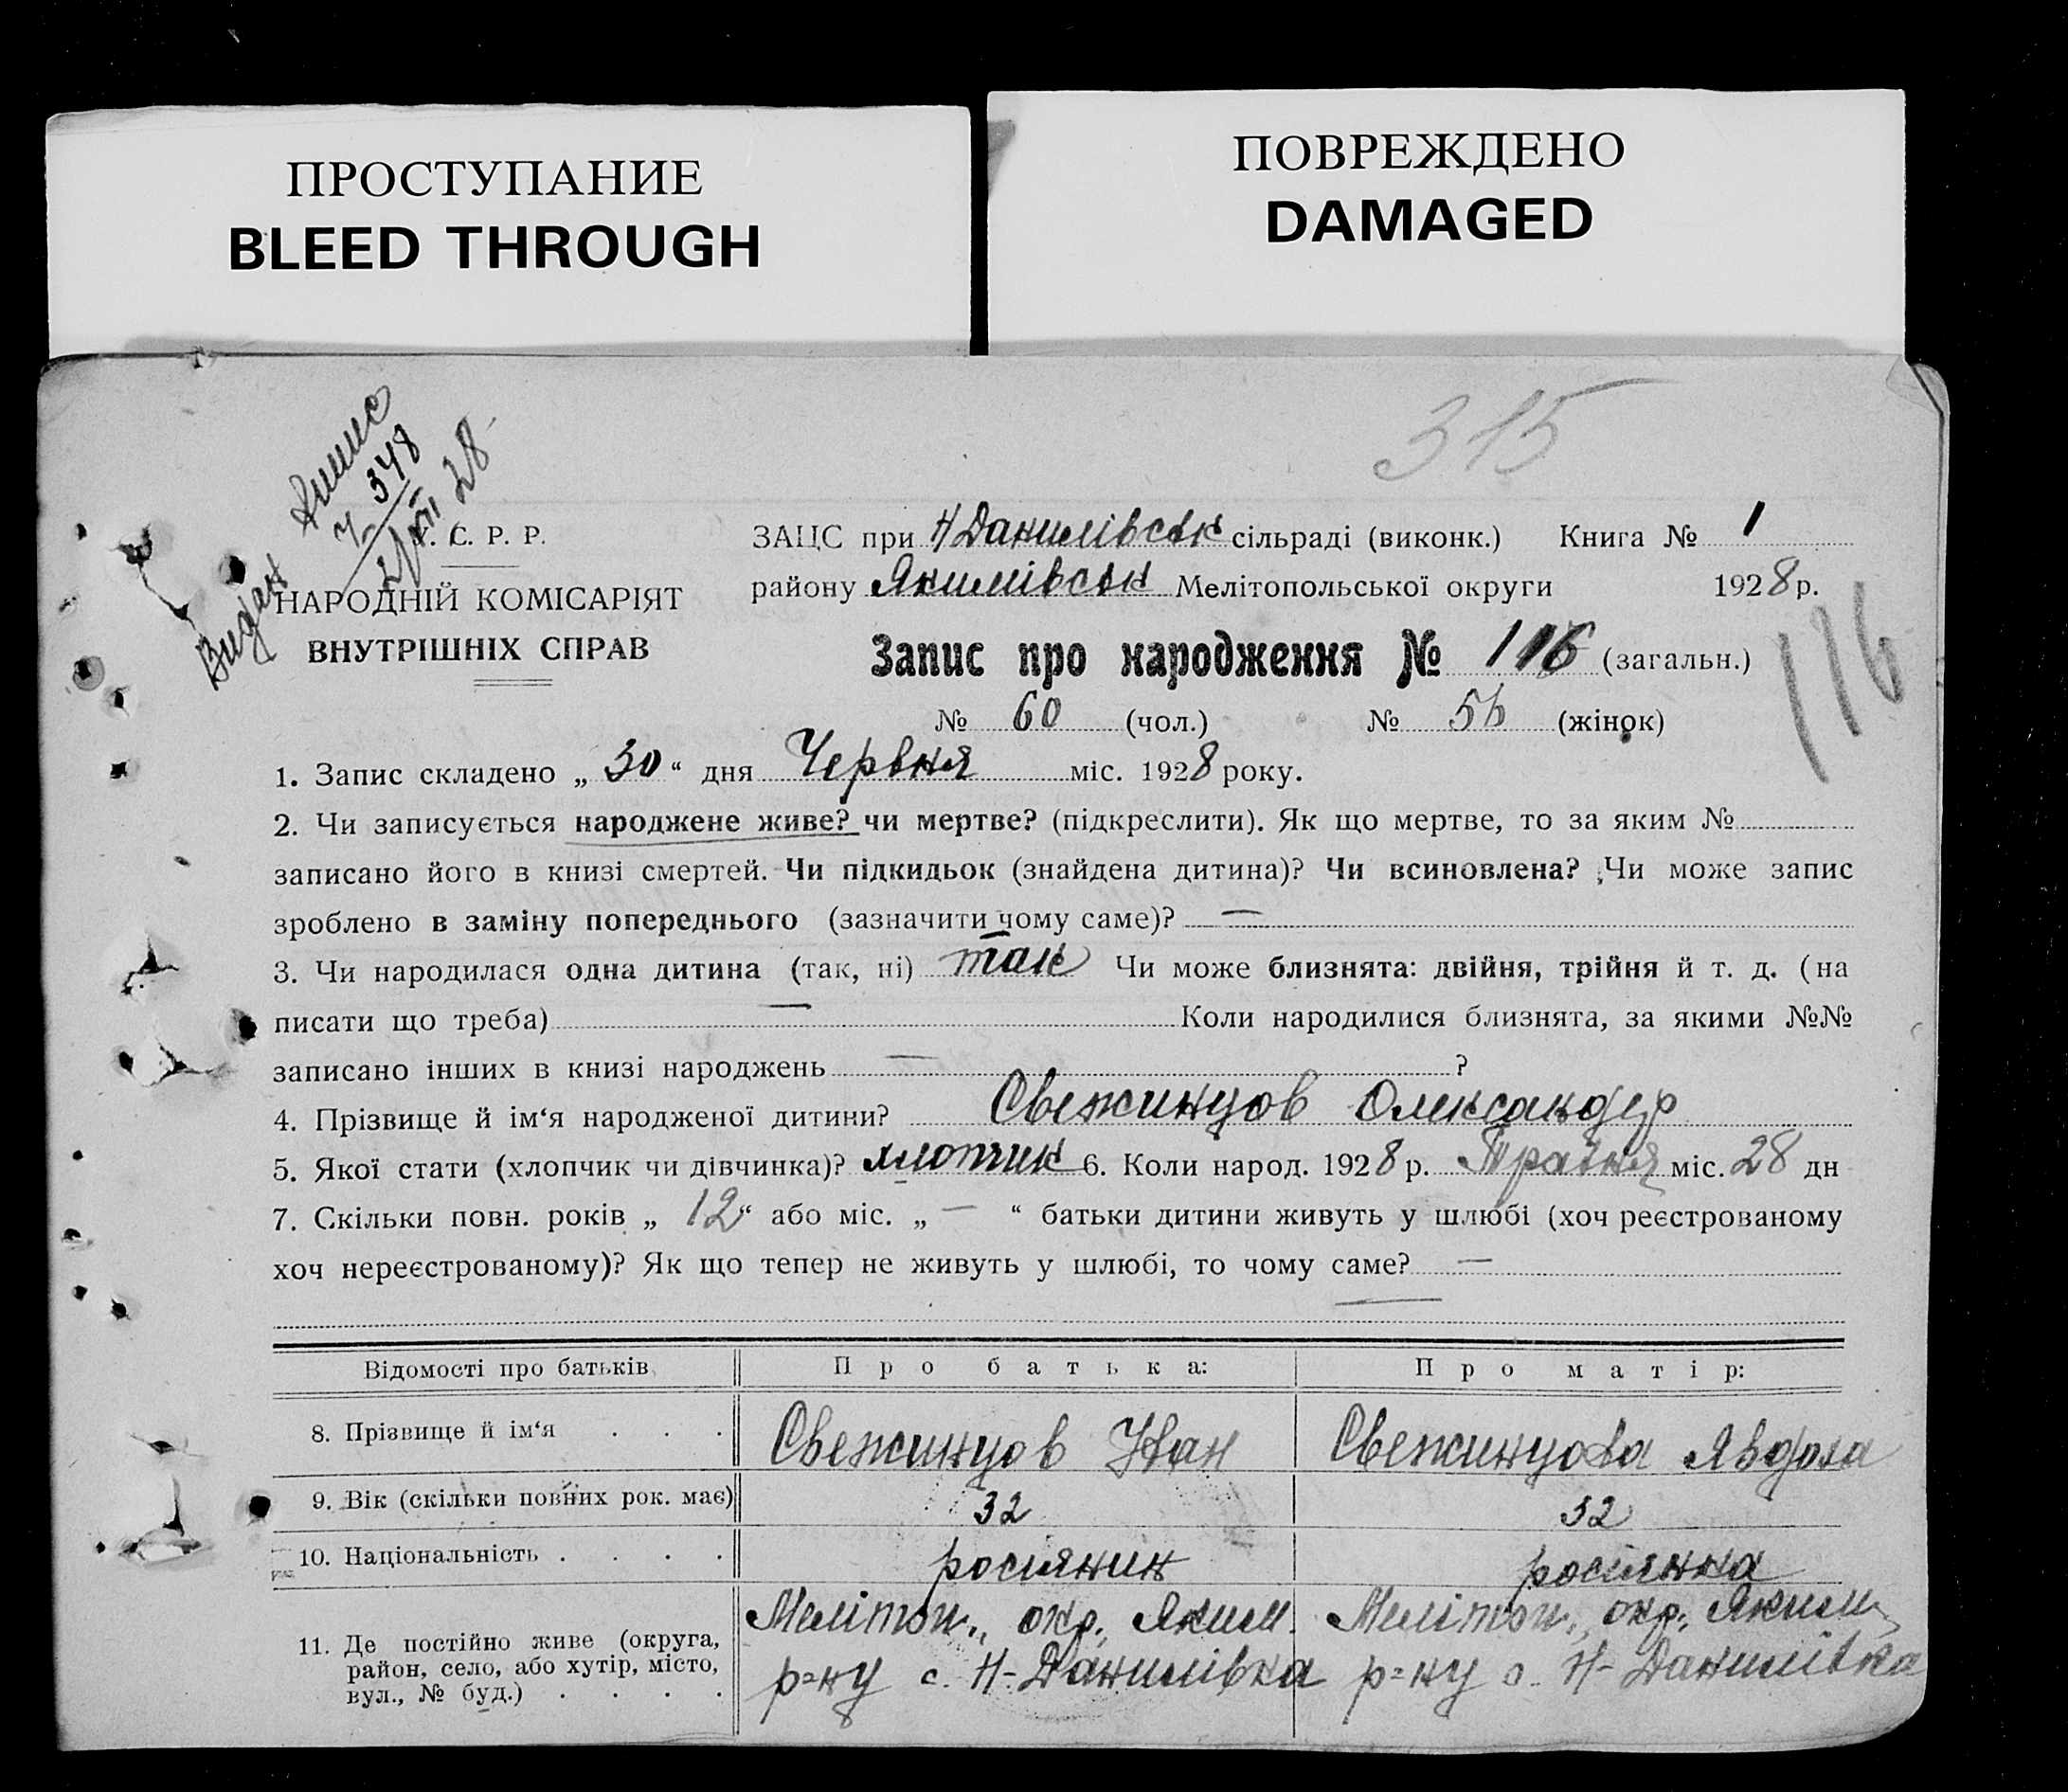 ПРОСТУПАНИЕ
BLEED THROUGH
ПОВРЕЖДЕНО
DAMAGED
315
Видан
Ч. 348
28
С. Р. Р.
НАРОДНІЙ КОМІСАРІЯТ
ВНУТРІШНІХ СПРАВ
ЗАЦС при Н Данилівськ сільраді (виконк.) Книга № 1
району Якимівськ Мелітопольської округи 1928 р.
Запис про народження № 116 (загальн.)
116
№ 60 (чол.) № (жінок)
1. Запис складено „ 30 “ дня Червня міс. 1928 року.
2. Чи записується народжене живе? чи мертве? (підкреслити). Як що мертве, то за яким №
записано його в книзі смертей. Чи підкидьок (знайдена дитина)? Чи всиновлена? Чи може запис
зроблено в заміну попереднього (зазначити чому саме)? —
3. Чи народилася одна дитина (так, ні) так Чи може близнята: двійня, трійня й т. д. (на
писати що треба) — Коли народилися близнята, за якими №№
записано інших в книзі народжень — ?
4. Прізвище й ім‘я народженої дитини? Свежинцов Олександер
5. Якої стати (хлопчик чи дівчинка)? хлопчик 6. Коли народ. 1928 р. Травня міс. 28 дн
7. Скільки повн. років „ 12 “ або міс. „ — “ батьки дитини живуть у шлюбі (хоч реєстрованому
хоч нереєстрованому)? Як що тепер не живуть у шлюбі, то чому саме? —
Відомості про батьків Про батька: Про матір:
8. Прізвище й ім‘я . . . Свежинцов Иван Свежинцова Явдоха
9. Вік (скільки повних рок. має) 32 32
10. Національність . . . . росіянин росіянка
11. Де постійно живе (округа,
район, село, або хутір, місто,
вул., № буд.) . . . .
Мелітоп., окр. Яким.
р=ну с. Н-Данилівка
Мелітоп., окр. Яким
р=ну с. Н-Данилівка